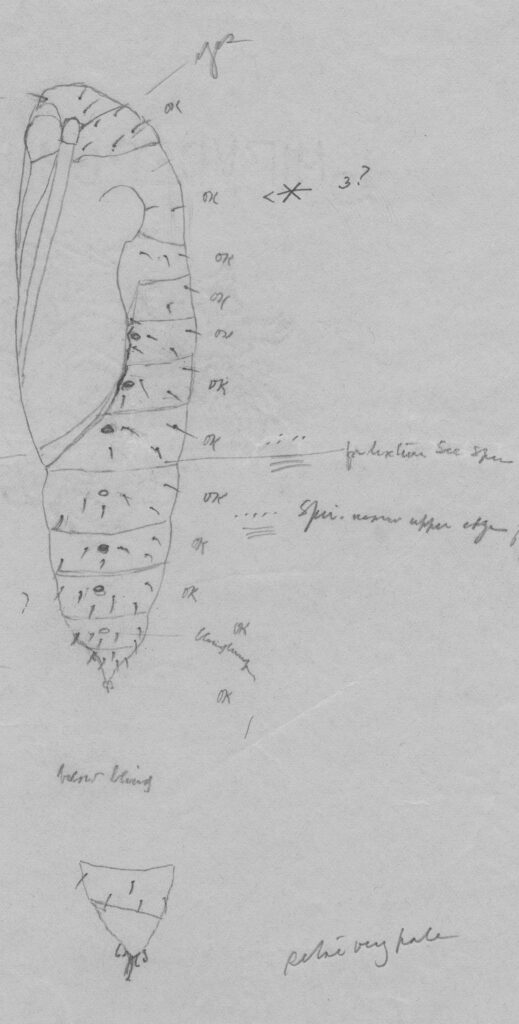 eyes
OK
OK
3?
OK
OK
OK
OK
OK
for texture See Spec
OK
Spir. narrow upper edge
OK
OK
?
OK
OK
setae very pale